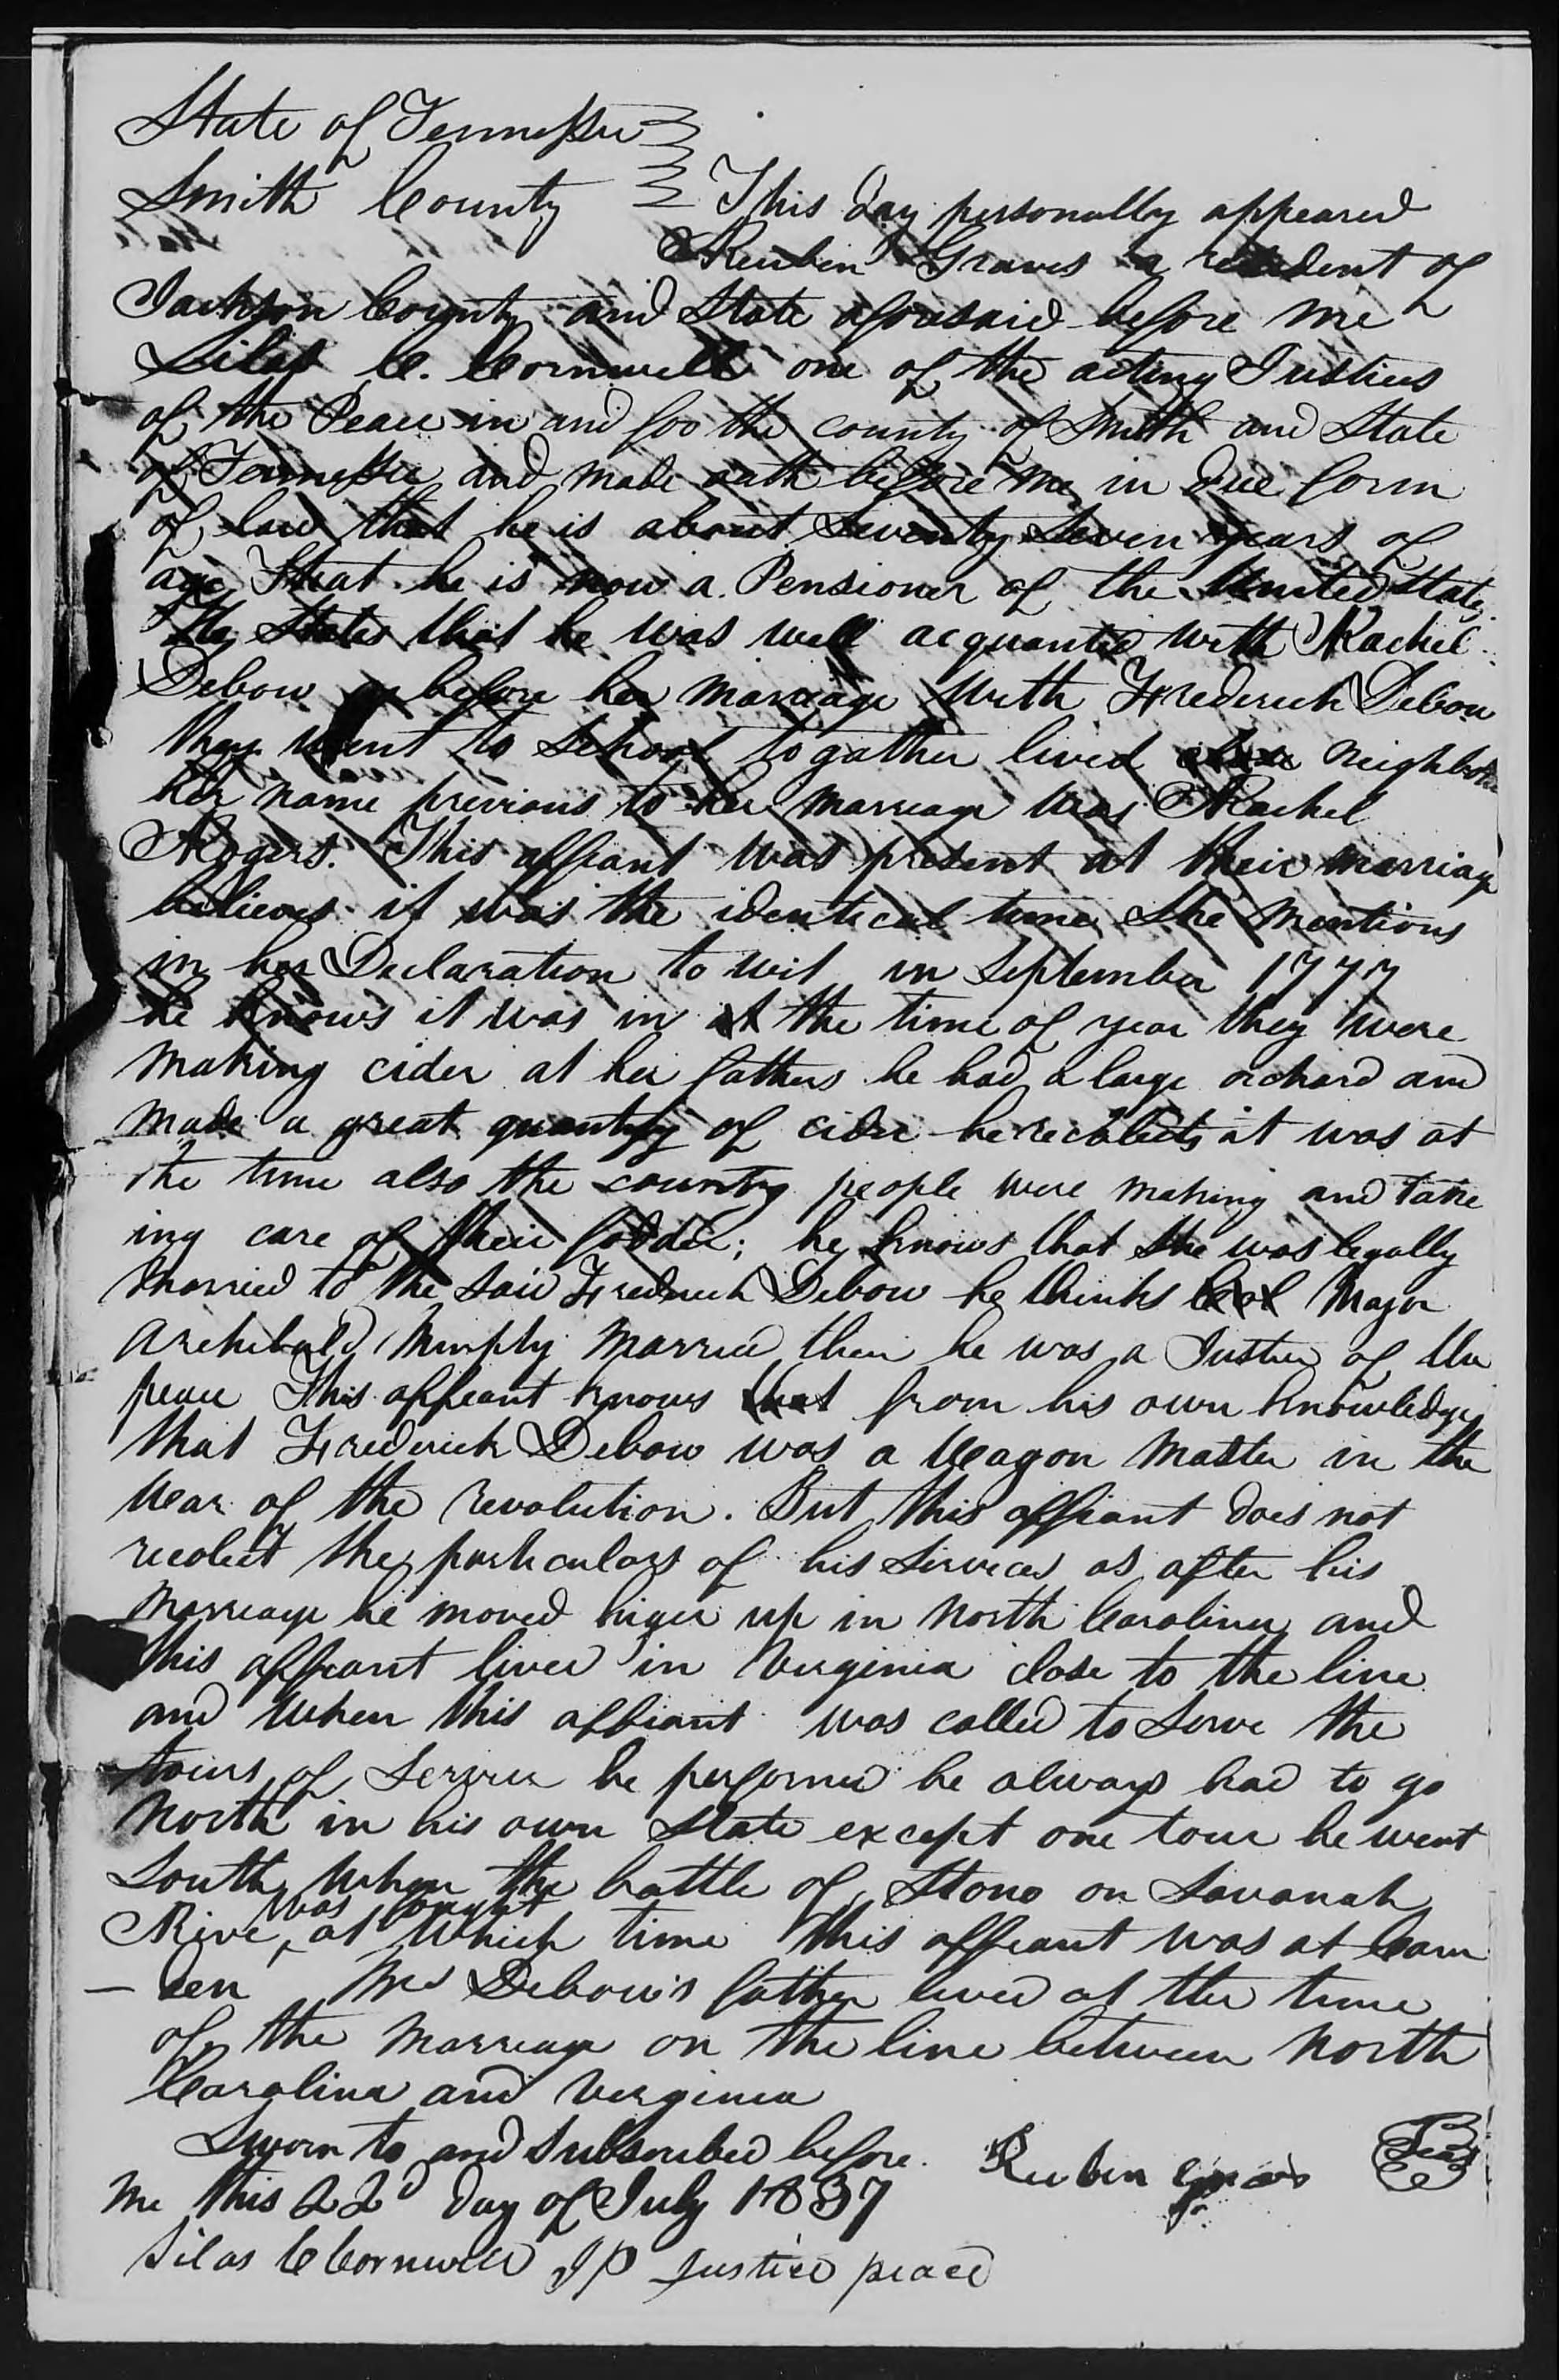 State of Tennessee
Smith County This day personally appeared
Reubin Graves a resident of
Jackson County and State aforesaid before me
Silas C. Cornwell one of the acting Justices
of the Peace in and for the county of Smith and State
of Tennessee and made oath before me in due form
of law that he is about Seventy Seven years of
age That he is now a Pensioner of the United States
He States that he was well acquanted with Rachel
Debow before her marriage with Frederick Debow
they went to School togather lived close neighbors
her name previous to her marriage was Rachel
Rogers. This affiant was present at their marriage
believes it was the identical time She mentions
in her Declaration to wit in September 1777
he knows it was in at the time of year they were
making cider at her fathers he had a large orchard and
made a great quantity of cider he recolects it was at
the time also the country people were making and take
ing care of their fodder; he knows that She was legally
married to the said Frederick Debow he thinks Major
Archibald Murphy married them he was a Justice of the
peace This affiant knows that from his own knowledge
that Frederick Debow was a Wagon Master in the
wear of the revolution. But this affiant does not
recolect the particulars of his Services as after his
marreage he moved higer up in North Carolina and
this affiant lived in Virginia close to the line
and when this affiant was called to Serve the
tours of Service he performed he always had to go
North in his own State except one tour he went
South when the battle of Stono on Savanah
River was fought at which time this affiant was at Cam
- den Mrs Debow's father lived at the time
of the marreage on the line between North
Carolina and Verginia
Sworn to and Subscribed before Reuben Graves Seal
me this 22d day of July 1837
Silas C Cornwell J P Justice peace